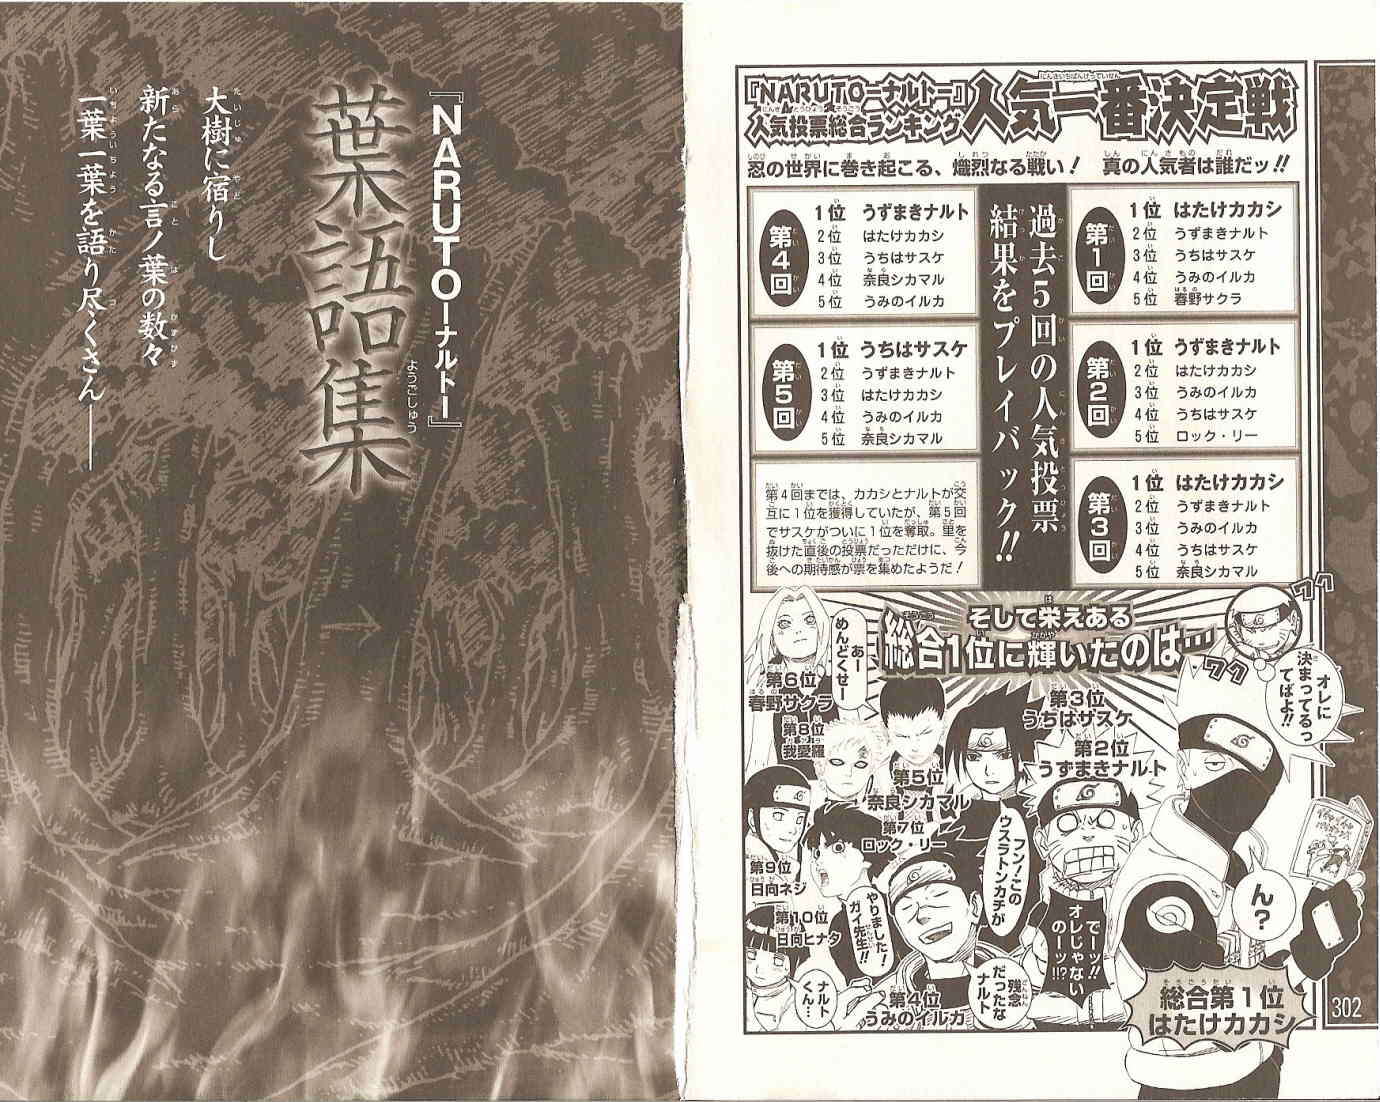 『NARUTO―ナルト―』
人気投票総合ランキング
人気一番決定戦
忍の世界に巻き起こる、熾烈なる戦い！　真の人気者は誰だッ!!
過去5回の人気投票
結果をプレイバック!!
第1回
1位　はたけカカシ
2位　うずまきナルト
3位　うちはサスケ
4位　うみのイルカ
5位　春野サクラ
第2回
1位　うずまきナルト
2位　はたけカカシ
3位　うみのイルカ
4位　うちはサスケ
5位　ロック・リー
第3回
1位　はたけカカシ
2位　うずまきナルト
3位　うみのイルカ
4位　うちはサスケ
5位　奈良シカマル
第4回
1位　うずまきナルト
2位　はたけカカシ
3位　うちはサスケ
4位　奈良シカマル
5位　うみのイルカ
第5回
1位　うちはサスケ
2位　うずまきナルト
3位　はたけカカシ
4位　うみのイルカ
5位　奈良シカマル
第4回までは、カカシとナルトが交
互に1位を獲得していたが、第5回
でサスケがついに1位を奪取。里を
抜けた直後の投票だっただけに、今
後への期待感が票を集めたようだ！
そして栄えある
総合1位に輝いたのは…
ワク
ワク
オレに
決まってるっ
てばよ!!
あー
めんどくせー
第6位
春野サクラ
第8位
我愛羅
第3位
うちはサスケ
第2位
うずまきナルト
第5位
奈良シカマル
第7位
ロック・リー
フン！この
ウスラトンカチが
第9位
日向ネジ
やりました！
ガイ先生!!
でーッ!!
オレじゃない
のーッ!!?
ん？
第10位
日向ヒナタ
ナルト
くん…
残念
だったな
ナルト
第4位
うみのイルカ
総合第1位
はたけカカシ
302
『NARUTO―ナルト―』
葉語集
ようごしゅう
大樹に宿りし
新たなる言ノ葉の数々
一葉一葉を語り尽くさん――